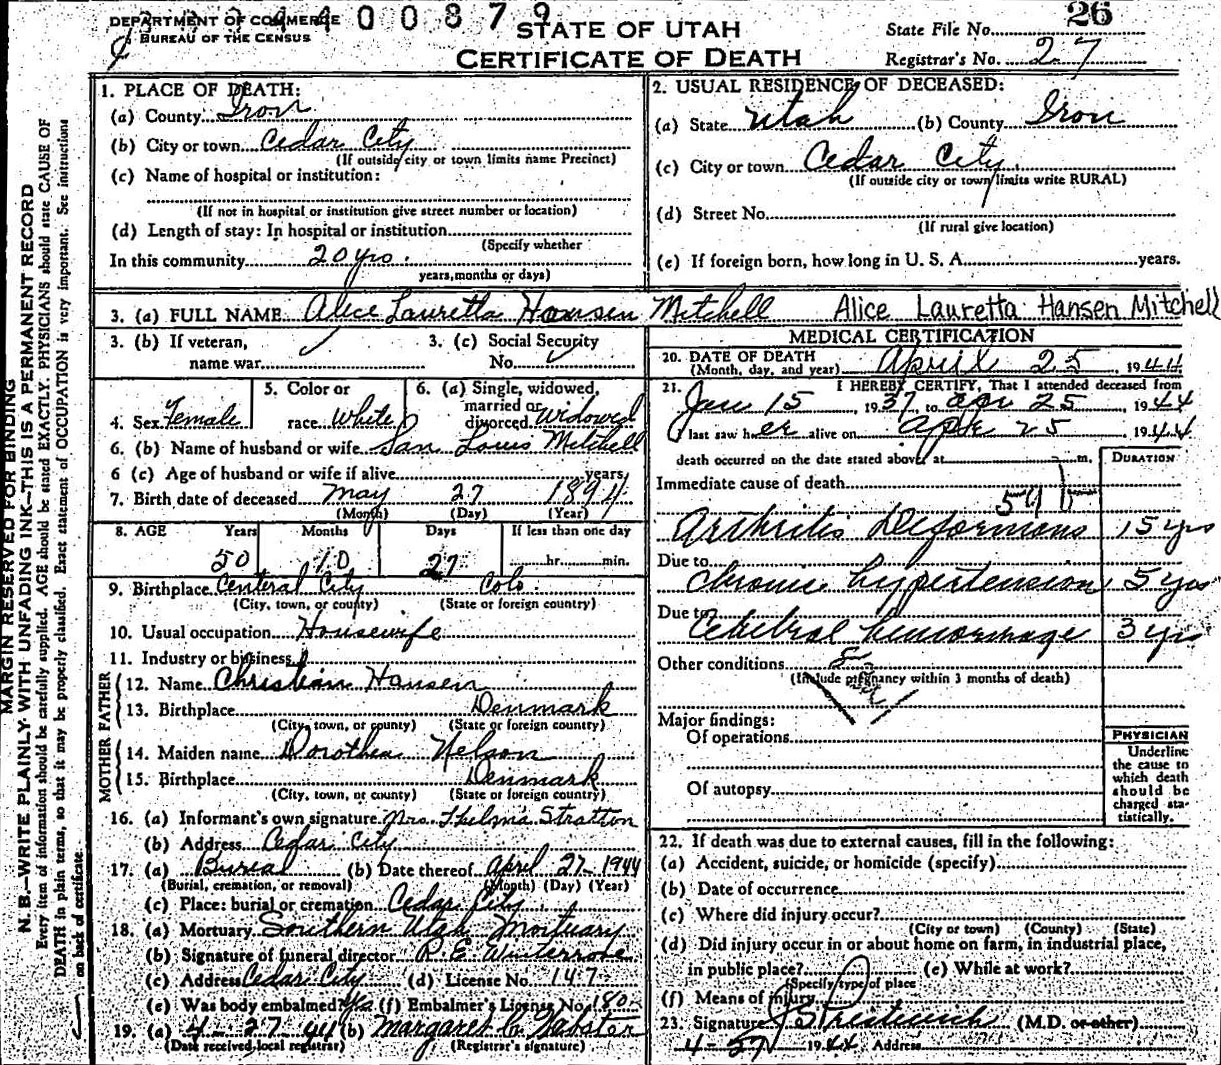 DEPARTMENT OF COMMERCE
BUREAU OF THE CENSUS
4 0 0 8 7 9
STATE OF UTAH
CERTIFICATE OF DEATH
26
State File No.
Registrar's No. 27
MARGIN RESERVED FOR BINDING
N. B.—WRITE PLAINLY WITH UNFADING INK—THIS IS A PERMANENT RECORD
Every item of information should be carefully supplied. AGE should be stated EXACTLY. PHYSICIANS should state CAUSE OF
DEATH in plain terms, so that it may be properly classified. Exact statement of OCCUPATION is very important. See instructions
on back of certificate.
1. PLACE OF DEATH:
(a) County Iron
(b) City or town Cedar City
(If outside city or town limits name Precinct)
(c) Name of hospital or institution:
(If not in hospital or institution give street number or location)
(d) Length of stay: In hospital or institution
(Specify whether
In this community 20 yrs.
years, months or days)
2. USUAL RESIDENCE OF DECEASED:
(a) State Utah (b) County Iron
(c) City or town Cedar City
(If outside city or town limits write RURAL)
(d) Street No.
(If rural give location)
(e) If foreign born, how long in U. S. A. years.
3. (a) FULL NAME Alice Lauretta Hansen Mitchell Alice Lauretta Hansen Mitchell
3. (b) If veteran, name war
3. (c) Social Security No.
4. Sex Female
5. Color or race White
6. (a) Single, widowed, married or divorced Widowed
6. (b) Name of husband or wife San Louis Mitchell
6 (c) Age of husband or wife if alive years
7. Birth date of deceased May 27 1894
(Month) (Day) (Year)
8. AGE Years Months Days If less than one day
50 10 27 hr. min.
9. Birthplace Central City Colo.
(City, town, or county) (State or foreign country)
10. Usual occupation Housewife
11. Industry or business
FATHER
12. Name Christian Hansen
13. Birthplace Denmark
(City, town, or county) (State or foreign country)
MOTHER
14. Maiden name Dorothea Nelson
15. Birthplace Denmark
(City, town, or county) (State or foreign country)
16. (a) Informant's own signature Mrs. Thelma Stratton
(b) Address Cedar City
17. (a) Burial (b) Date thereof April 27 - 1944
(Burial, cremation, or removal) (Month) (Day) (Year)
(c) Place: burial or cremation Cedar City
18. (a) Mortuary Southern Utah Mortuary
(b) Signature of funeral director R. E. Winterrose
(c) Address Cedar City (d) License No. 147
(e) Was body embalmed? Yes (f) Embalmer's License No. 180
19. (a) 4 - 27 - 44 (b) Margaret Webster
(Date received local registrar) (Registrar's signature)
MEDICAL CERTIFICATION
20. DATE OF DEATH April 25 1944
(Month, day, and year)
21. I HEREBY CERTIFY, That I attended deceased from
Jan 15, 1937 to apr 25 1944
I last saw her alive on 25 1944
death occurred on the date stated above at m. DURATION
Immediate cause of death
59
Arthritis Deformans 15 yrs
Due to
chronic hypertension 5 yrs
Due to
Cerebral hemorrhage 3 yrs
Other conditions
(Include pregnancy within 3 months of death)
Major findings:
Of operations
Of autopsy
PHYSICIAN
Underline
the cause to
which death
should be
charged sta-
tistically.
22. If death was due to external causes, fill in the following:
(a) Accident, suicide, or homicide (specify)
(b) Date of occurrence
(c) Where did injury occur?
(City or town) (County) (State)
(d) Did injury occur in or about home on farm, in industrial place,
in public place? (e) While at work?
(Specify type of place
(f) Means of injury
23. Signature (M.D. or other)
4-27 1944 Address